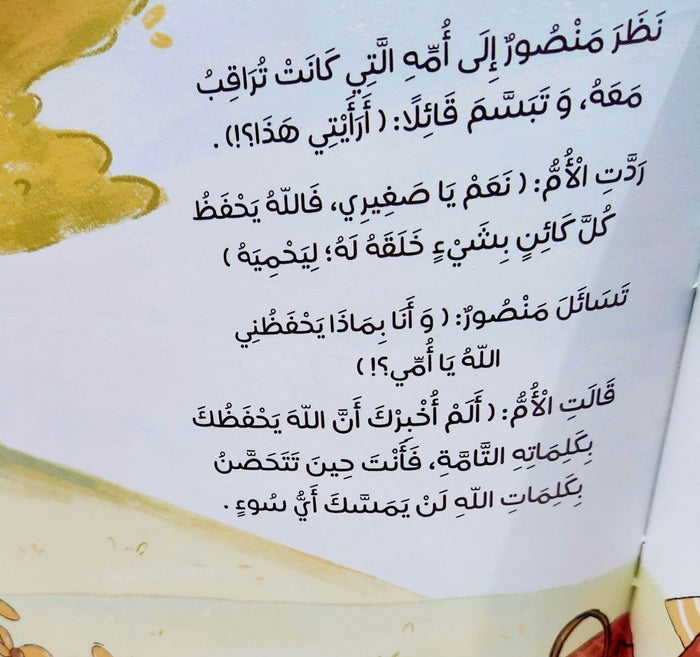 نَظَرَ مَنْصُورٌ إِلَى أُمِّهِ الَّتِي كَانَتْ تُرَاقِبُ
مَعَهُ، وَ تَبَسَّمَ قَائِلًا: ( أَرَأَيْتِي هَذَا؟!) .
رَدَّتِ الْأُمُّ: ( نَعَمْ يَا صَغِيرِي، فَاللهُ يَحْفَظُ
كُلَّ كَائِنٍ بِشَيْءٍ خَلَقَهُ لَهُ؛ لِيَحْمِيَهُ )
تَسَائَلَ مَنْصُورٌ: ( وَ أَنَا بِمَاذَا يَحْفَظُنِي
اللهُ يَا أُمِّي؟! )
قَالَتِ الْأُمُّ: ( أَلَمْ أُخْبِرْكَ أَنَّ اللهَ يَحْفَظُكَ
بِكَلِمَاتِهِ التَّامَّةِ، فَأَنْتَ حِينَ تَتَحَصَّنُ
بِكَلِمَاتِ اللهِ لَنْ يَمَسَّكَ أَيُّ سُوءٍ .